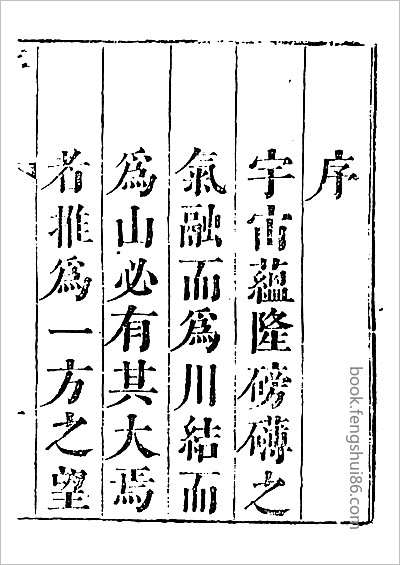 序
宇宙蘊隆磅礴之
氣融而為川結而
為山必有其大焉
者推為一方之望
book.fengshui86.com